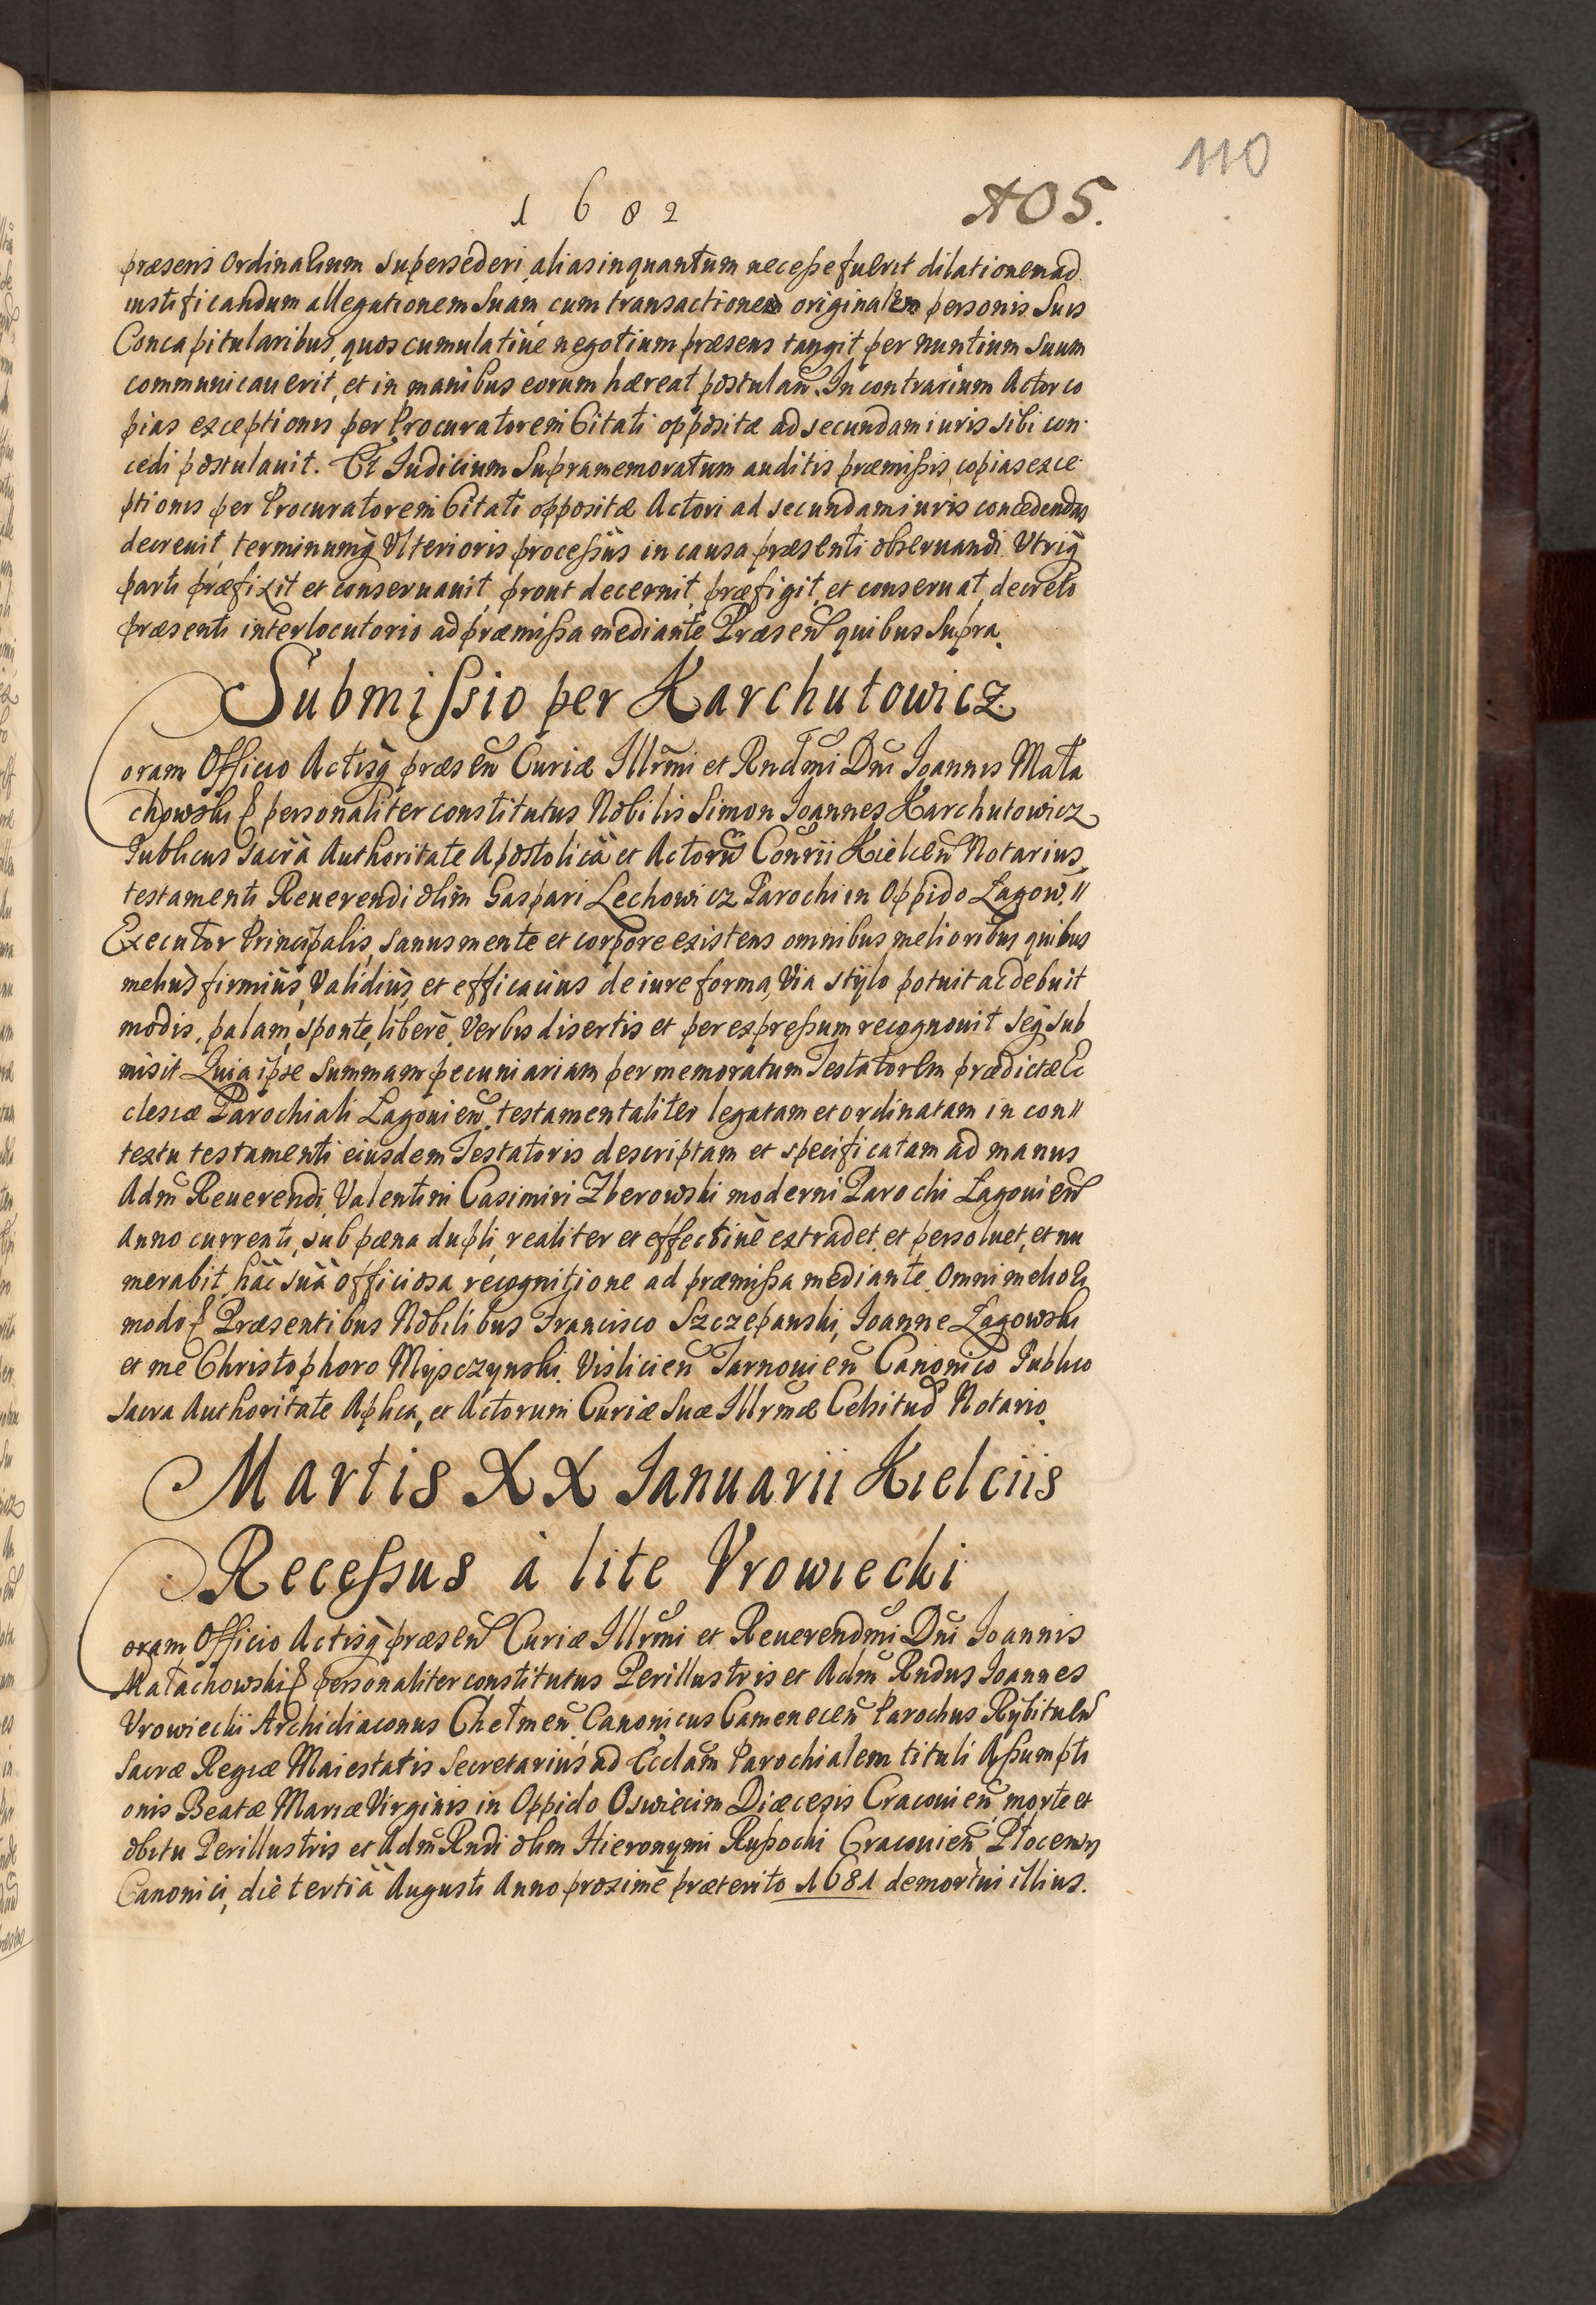 110
1682
105.
præsens Ordinarium supersederi, alias inquantum necesse fuerit dilationem ad
iustificandum allegationem suam cum transactionem originalem personis suis
Concapitularibus, quos cumulatiuè negotium præsens tangit per nuntium suum
communicauerit, et in manibus eorum hæreat postulan̄. In contrarium Actor co
pias exceptionis per Procuratorem Citati oppositæ ad secundam iuris sibi con
cedi postulauit. Et Iudicium supramemoratum auditis præmissis, copias exce
ptionis per Procuratorem Citati oppositæ Actori ad secundam iuris concedendas
decreuit, terminumq̀ Vlterioris processûs in causa præsenti obseruandi Vtriq̀
parti præfixit et conseruauit, prout decernit, præfigit, et conseruat, decreto
præsenti interlocutorio ad præmissa mediante Præsen̄ quibus supra.
Submissio per Karchutowicz.
Coram Officio Actisq̀ præsen̄ Curiæ Illr̄mi et Rnd̄mi Dn̄i Ioannis Mała
chowski & personaliter constitutus Nobilis Simon Ioannes Karchutowicz
Publicus sacrâ Authoritate Apostolicâ et Actorū Con̄rii Kielcen̄ Notarius
testamenti Reuerendi olim Gaspari Lechowicz Parochi in Oppido Łagow //
Executor Principalis, sanus mente et corpore existens omnibus melioribus quibus
meliùs firmiùs, Validiùs, et efficacius de iure forma, Via stylo potuit ac debuit
modis, palam, sponte, liberè, Verbis disertis et per expressum recognouit seq̀ sub
misit Quia ipse summam pecuniariam per memoratum Testatorem prædictæ Ec
clesiæ Parochiali Łagouien̄ testamentaliter legatam et ordinatam in con //
textu testamenti eiusdem Testatoris descriptam et specificatam ad manus
Adm̄ Reuerendi Valentini Casimiri Zberowski moderni Parochi Łagouien̄
Anno currenti, sub pæna dupli, realiter et effectiuè extradet, et persoluet, et nu
merabit, hâc suâ officiosa recognitione ad præmissa mediante. Omni meliori
modo & Præsentibus Nobilibus Francisco Szczepanski, Ioanne Łagowski
et me Christophoro Mysczynski Vislicien̄ Tarnouien̄ Canonico Publico
sacra Authoritate Aplica, et Actorum Curiæ suæ Illr̄mæ Celsitud̄ Notario.
Martis XX Ianuarii Kielciis
Recessus à lite Vrowiecki
Coram Officio Actisq̀ præsen̄ Curiæ Illr̄mi et Reuerendm̄i Dn̄i Ioannis
Małachowski & personaliter constitutus Perillustris et Adm̄ Rndus Ioannes
Vrowiecki Archidiaconus Chełmen̄ Canonicus Camenecen̄ Parochus Rybituen̄
Sacræ Regiæ Maiestatis Secretarius ad Eccl̄am Parochialem tituli Assumpti
onis Beatæ Mariæ Virginis in Oppido Oswiecim Diæcesis Cracouien̄ morte et
obitu Perillustris et Adm̄ Rndi olim Hieronymi Rupocki Cracouien̄ Płocensis
Canonici, die tertiâ Augusti Anno proximè præterito 1681 demortui illius.